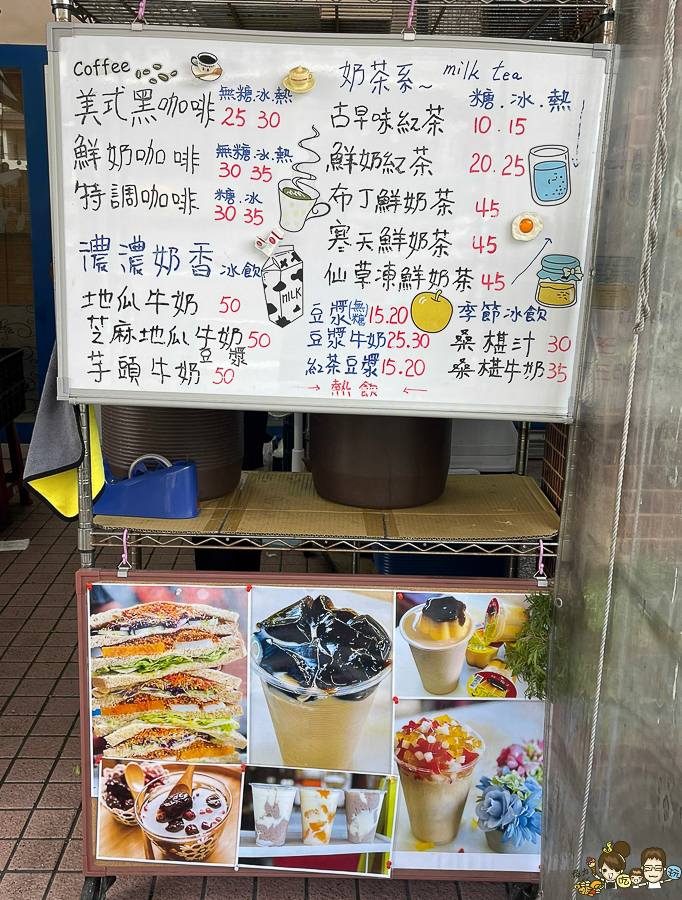 coffee
美式黑咖啡 無糖.冰.熱 25 30
鮮奶咖啡 無糖.冰.熱 30 35
特調咖啡 糖.冰 30 35
濃濃奶香 冰飲
地瓜牛奶 50
芝麻地瓜牛奶 50
芋頭牛奶 豆漿 50
奶茶系~ milk tea
糖.冰.熱
古早味紅茶 10.15
鮮奶紅茶 20.25
布丁鮮奶茶 45
寒天鮮奶茶 45
仙草凍鮮奶茶 45
豆漿(無糖) 15.20
豆漿牛奶 25.30
紅茶豆漿 15.20
→ 熱飲 ←
季節冰飲
桑椹汁 30
桑椹牛奶 35
MILK